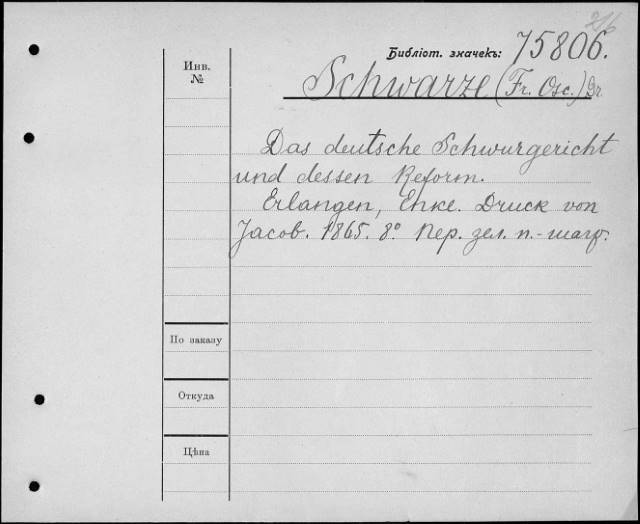 216
Библіот. значекъ: 75806.
Schwarze (Fr. Osc.) Dr.
Das deutsche Schwurgericht
und dessen Reform.
Erlangen, Enke. Druck von
Jacob. 1865. 8° Пер. зел. п.-шагр.
Инв.
№
По заказу
Откуда
Цѣна